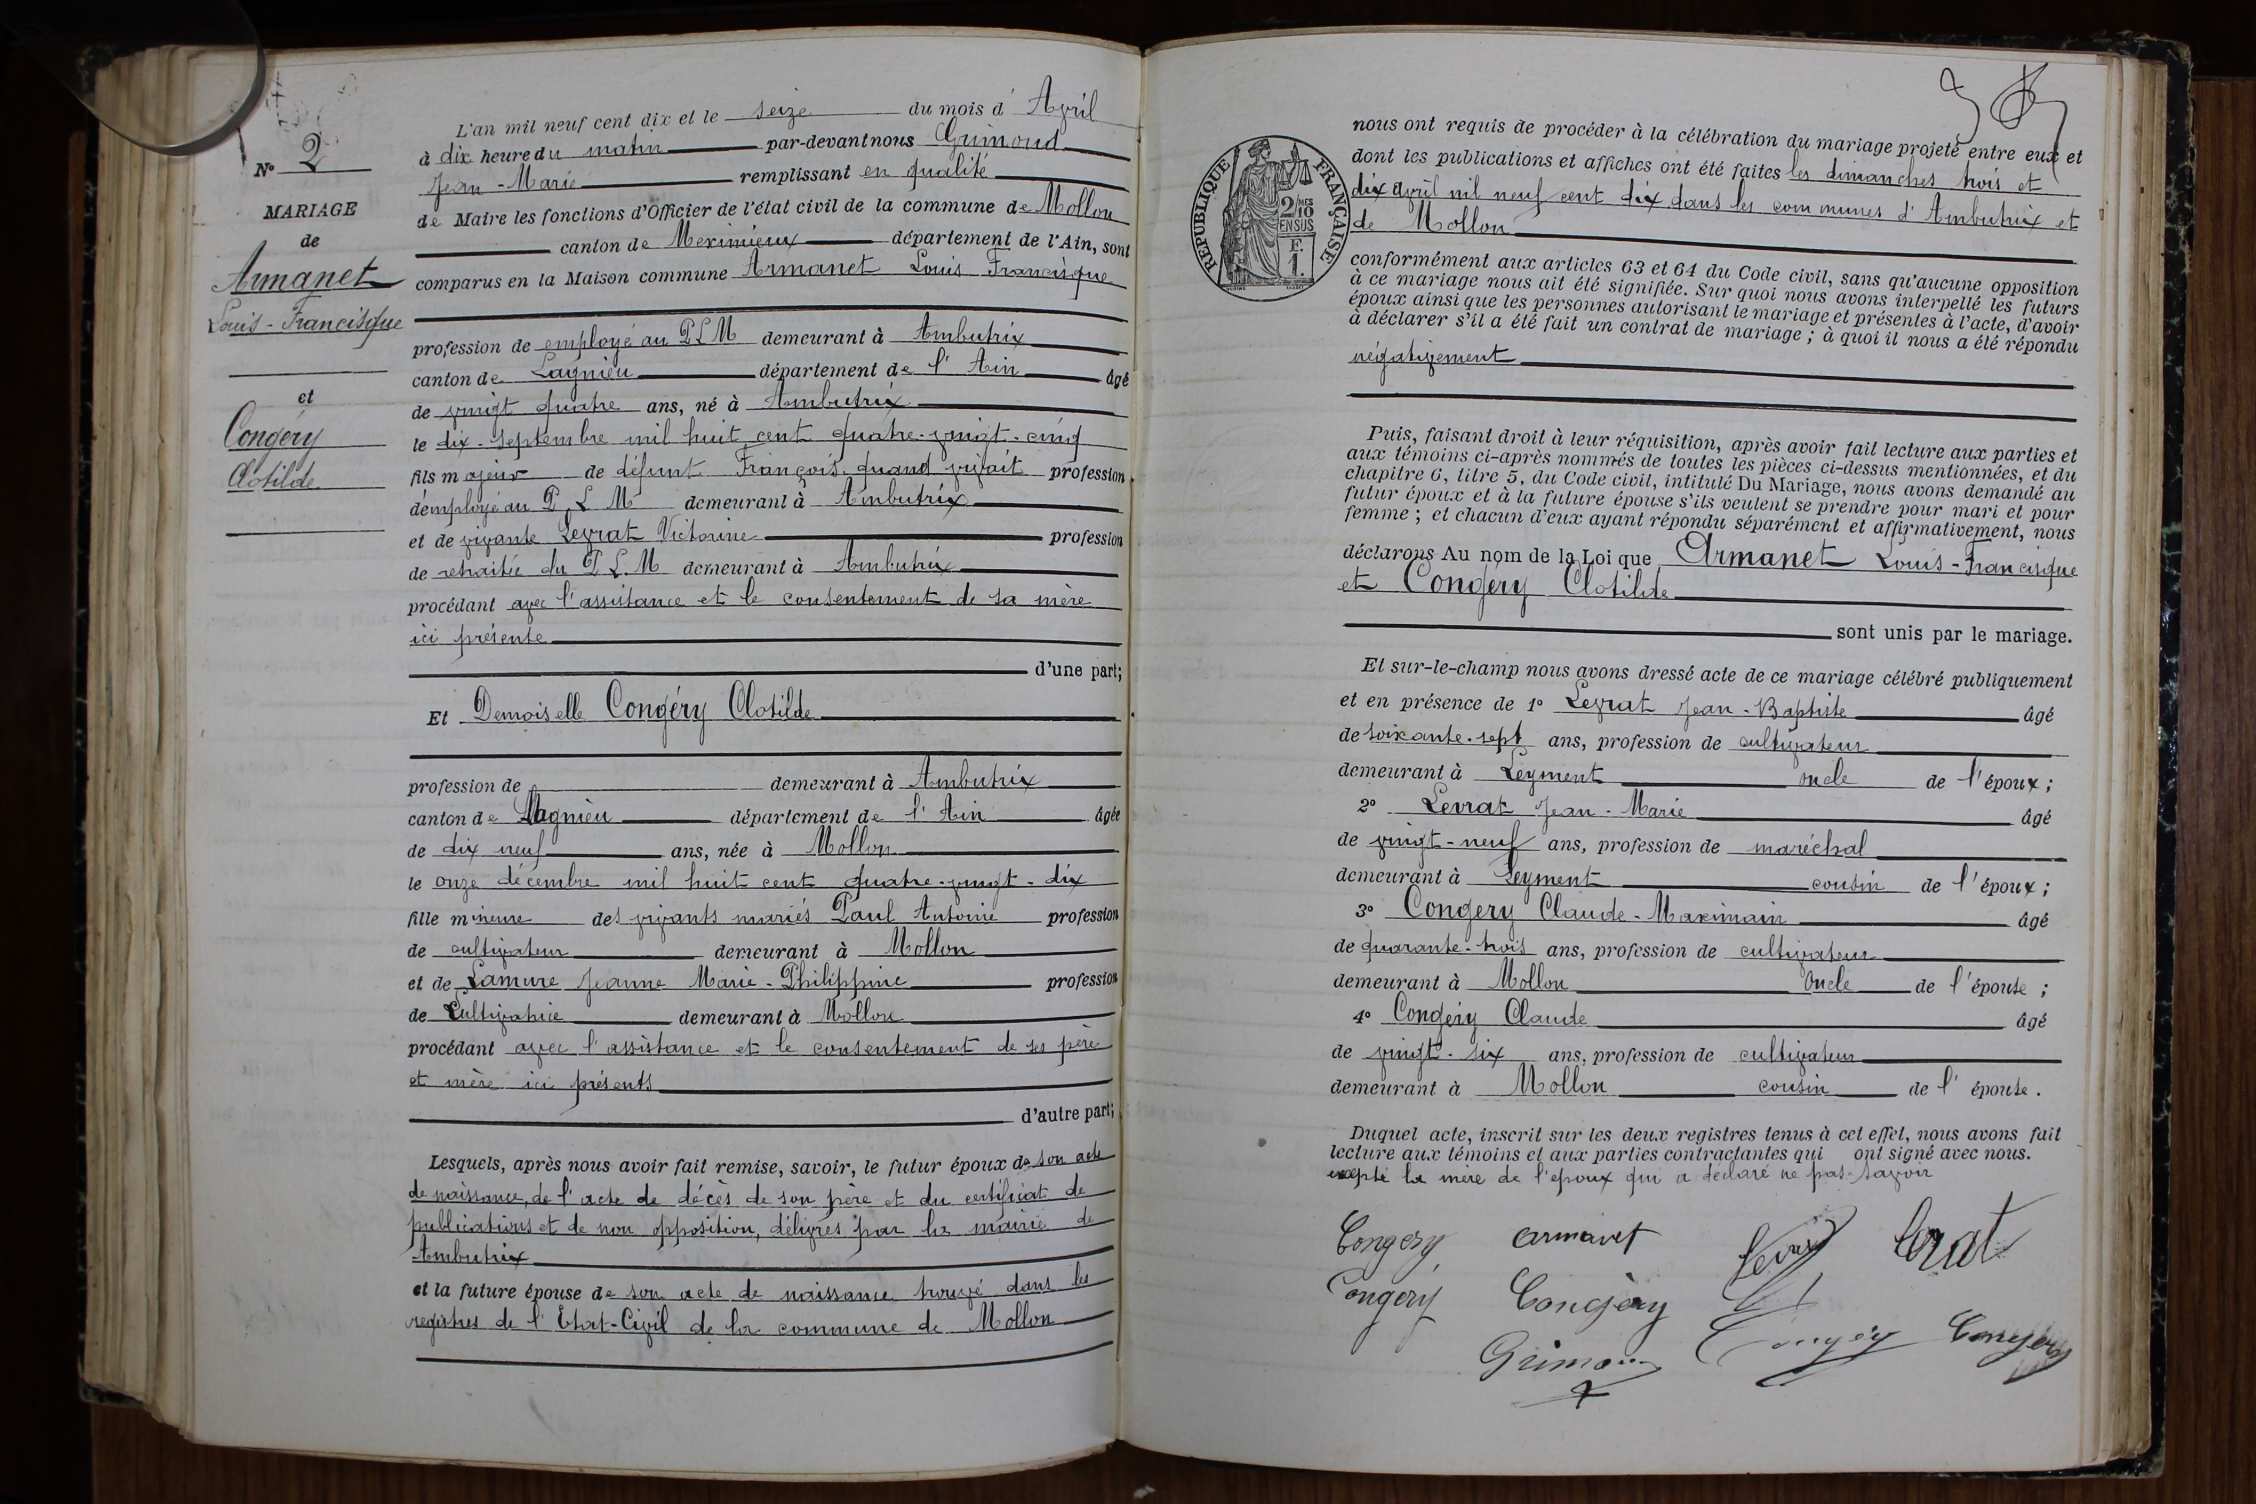 Nº 2
MARIAGE
de
Armanet
Louis-Francisque
et
Congéry
Clotilde
L'an mil neuf cent dix et le seize du mois d'Avril
à dix heure du matin par-devant nous Grimoud
Jean-Marie remplissant en qualité
de Maire les fonctions d'Officier de l'état civil de la commune de Mollon
canton de Meximieux département de l'Ain, sont
comparus en la Maison commune Armanet Louis Francisque
profession de employé au PLM demeurant à Ambutrix
canton de Lagnieu département de l'Ain âgé
de vingt quatre ans, né à Ambutrix
le dix-septembre mil huit cent quatre-vingt-cinq
fils majeur de défunt François quand vivait profession
d'employé au P.L.M demeurant à Ambutrix
et de vivante Levrat Victorine profession
de retraitée du P.L.M demeurant à Ambutrix
procédant avec l'assistance et le consentement de sa mère
ici présente
d'une part;
Et Demoiselle Congéry Clotilde
profession de demeurant à Ambutrix
canton de Lagnieu département de l'Ain âgée
de dix neuf ans, née à Mollon
le onze décembre mil huit cent quatre-vingt-dix
fille mineure des vivants mariés Paul Antoine profession
de cultivateur demeurant à Mollon
et de Lamure Jeanne Marie-Philippine profession
de Cultivatrice demeurant à Mollon
procédant avec l'assistance et le consentement de ses père
et mère ici présents
d'autre part;
Lesquels, après nous avoir fait remise, savoir, le futur époux de son acte
de naissance, de l'acte de décès de son père et du certificat de
publications et de non opposition, délivrés par la mairie de
Ambutrix
et la future épouse de son acte de naissance trouvé dans les
registres de l'Etat-Civil de la commune de Mollon
RÉPUBLIQUE FRANÇAISE
2/10 MES
EN SUS
F.
1.
nous ont requis de procéder à la célébration du mariage projeté entre eux et
dont les publications et affiches ont été faites les dimanches trois et
dix avril mil neuf cent dix dans les communes d'Ambutrix et
de Mollon
conformément aux articles 63 et 64 du Code civil, sans qu'aucune opposition
à ce mariage nous ait été signifiée. Sur quoi nous avons interpellé les futurs
époux ainsi que les personnes autorisant le mariage et présentes à l'acte, d'avoir
à déclarer s'il a été fait un contrat de mariage ; à quoi il nous a été répondu
négativement
Puis, faisant droit à leur réquisition, après avoir fait lecture aux parties et
aux témoins ci-après nommés de toutes les pièces ci-dessus mentionnées, et du
chapitre 6, titre 5, du Code civil, intitulé Du Mariage, nous avons demandé au
futur époux et à la future épouse s'ils veulent se prendre pour mari et pour
femme ; et chacun d'eux ayant répondu séparément et affirmativement, nous
déclarons Au nom de la Loi que Armanet Louis-Francisque
et Congéry Clotilde
sont unis par le mariage.
Et sur-le-champ nous avons dressé acte de ce mariage célébré publiquement
et en présence de 1º Levrat Jean-Baptiste âgé
de soixante-sept ans, profession de cultivateur
demeurant à Leyment oncle de l'époux ;
2º Levrat Jean-Marie âgé
de vingt-neuf ans, profession de maréchal
demeurant à Leyment cousin de l'époux ;
3º Congery Claude-Maximain âgé
de quarante-trois ans, profession de cultivateur
demeurant à Mollon Oncle de l'épouse ;
4º Congéry Claude âgé
de vingt-six ans, profession de cultivateur
demeurant à Mollon cousin de l'épouse.
Duquel acte, inscrit sur les deux registres tenus à cet effet, nous avons fait
lecture aux témoins et aux parties contractantes qui ont signé avec nous.
excepté la mère de l'époux qui a déclaré ne pas savoir
Congery Armanet Levrat
Congery Congèry
Grimoud Congéy Congery